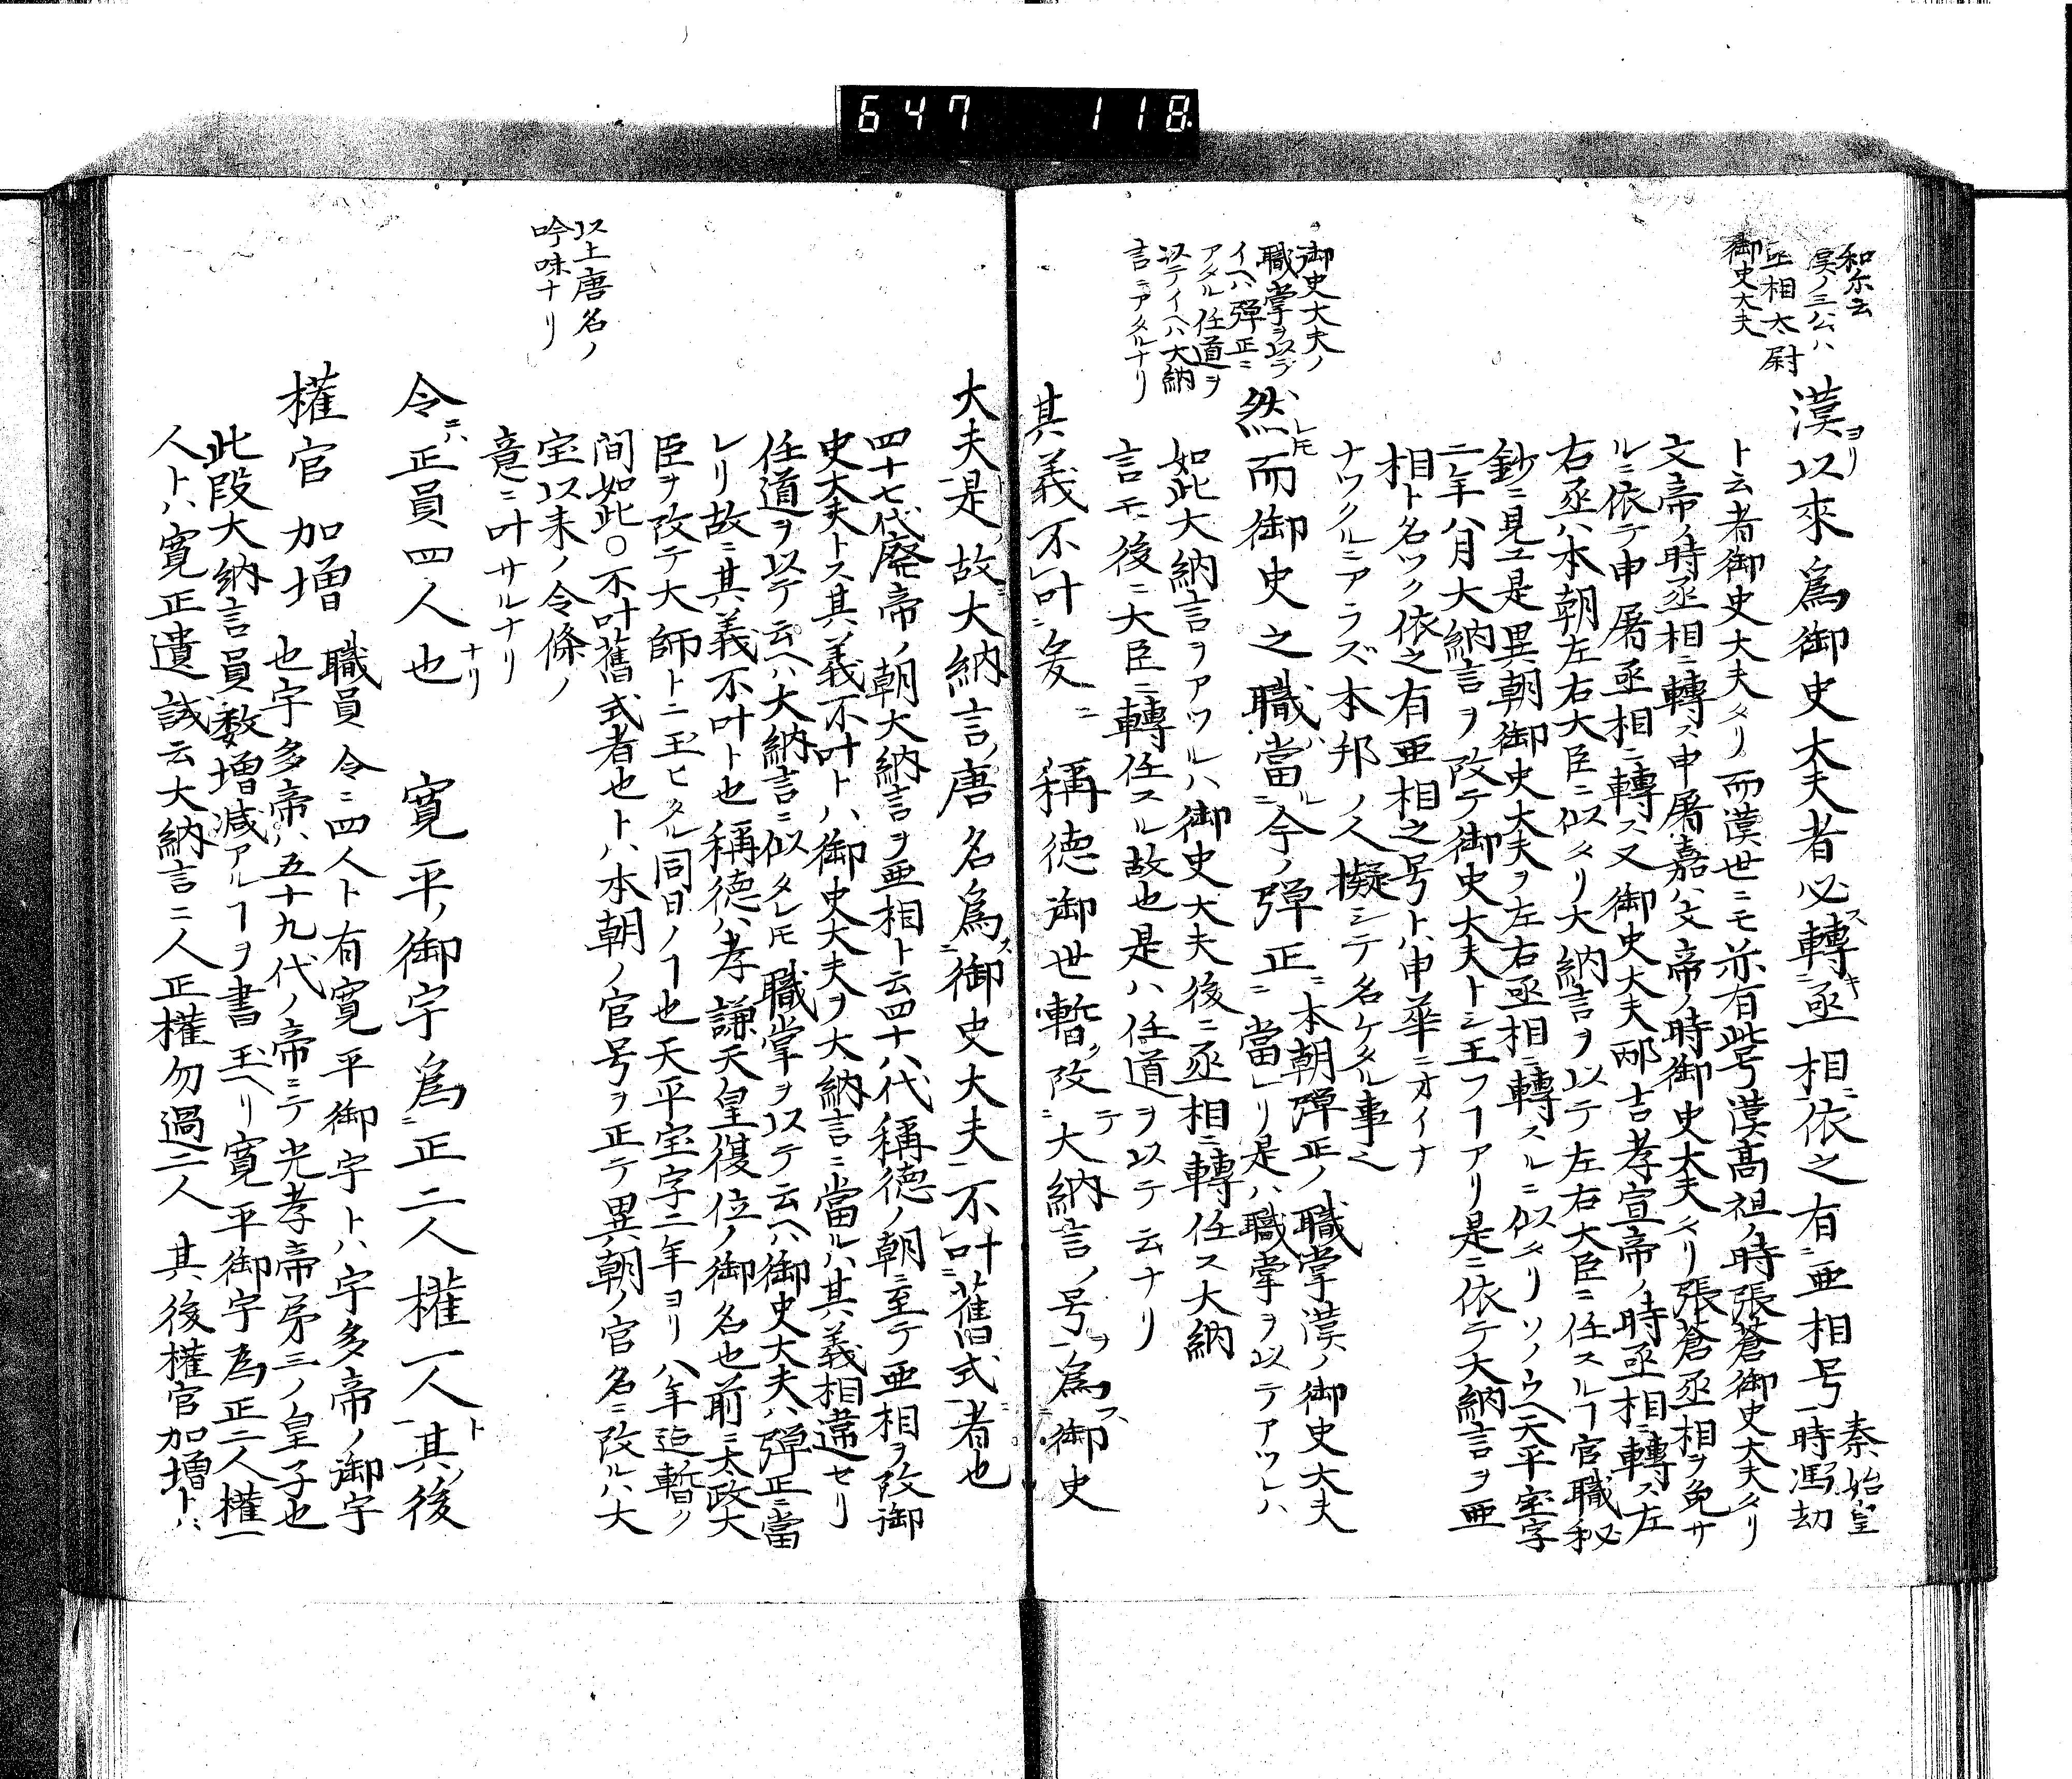 647 118
和尓云
漢ノ三公ハ
丞相太尉
御史大夫
漢ヨリ以來爲御史大夫者必轉ス丞相ニ依之有亜相号 秦始皇時馮劫
ト云者御史大夫タリ而漢世ニモ亦有此号漢高祖ノ時張蒼御史大夫タリ
文帝ノ時丞相ニ轉ス申屠嘉ハ文帝ノ時御史大夫タリ張蒼丞相ヲ免サ
ルニ依テ申屠丞相ニ轉ス又御史大夫邴吉孝宣帝ノ時丞相ニ轉ス左
右丞ハ本朝左右大臣ニ似タリ大納言ヲ以テ左右大臣ニ任スルヿ官職秘
鈔ニ見ユ是異朝御史大夫ヲ左右丞相ニ轉スルニ似タリソノウヘ天平宝字
二年八月大納言ヲ改テ御史大夫トシ玉フヿアリ是ニ依テ大納言ヲ亜
相ト名ツク依之有亜相之号トハ中華ニオイナ
ナツクルニアラズ本邦ノ人擬シテ名ケタル事也
御史大夫ノ
職掌ヲ以テ
イヘハ弾正ニ
アタル任道ヲ
以テイヘハ大納
言ニアタルナリ
然レ𪜈而御史之職當ル今ノ弾正ニ 本朝弾正ノ職掌漢ノ御史大夫
ニ當レリ是ハ職掌ヲ以テアツレハ
如此大納言ヲアツルハ御史大夫後ニ丞相ニ轉任ス大納
言モ後ニ大臣ニ轉任スル故也是ハ任道ヲ以テ云ナリ
其義不叶爰ニ稱徳御世暫ク改テ大納言ノ号ヲ爲ス御史
大夫是ノ故ニ大納言ノ唐名爲ス御史大夫ニ不叶舊式ニ者也
四十七代廢帝ノ朝大納言ヲ亜相ト云四十八代稱徳ノ朝ニ至テ亜相ヲ改御
史大夫トス其義不叶トハ御史大夫ヲ大納言ニ當ルハ其義相違セリ
任道ヲ以テ云ヘハ大納言ニ似タレ𪜈職掌ヲ以テ云ヘハ御史大夫ハ弾正ニ當
レリ故ニ其義不叶ト也稱徳ハ孝謙天皇復位ノ御名也前ニ太政大
臣ヲ改テ大師トニ玉ヒタル同日ノヿ也天平宝字二年ヨリ八年迠暫ク
間如此○不叶舊式者也トハ本朝ノ官号ヲ正テ異朝ノ官名ニ改ルハ大
宝以来ノ令條ノ
意ニ叶サルナリ
以上唐名ノ
吟味ナリ
令ニハ正員四人也ナリ 寛平ノ御宇爲ニ正二人權一人ト其後
權官加増 職員令ニ四人ト有寛平御宇トハ宇多帝ノ御宇
也宇多帝ハ五十九代ノ帝ニテ光孝帝第三ノ皇子也
此段大納言員数増减アルヿヲ書玉ヘリ寛平御宇為正二人權一
人トハ寛正遺誡云大納言二人正權勿過二人 其後權官加増トハ